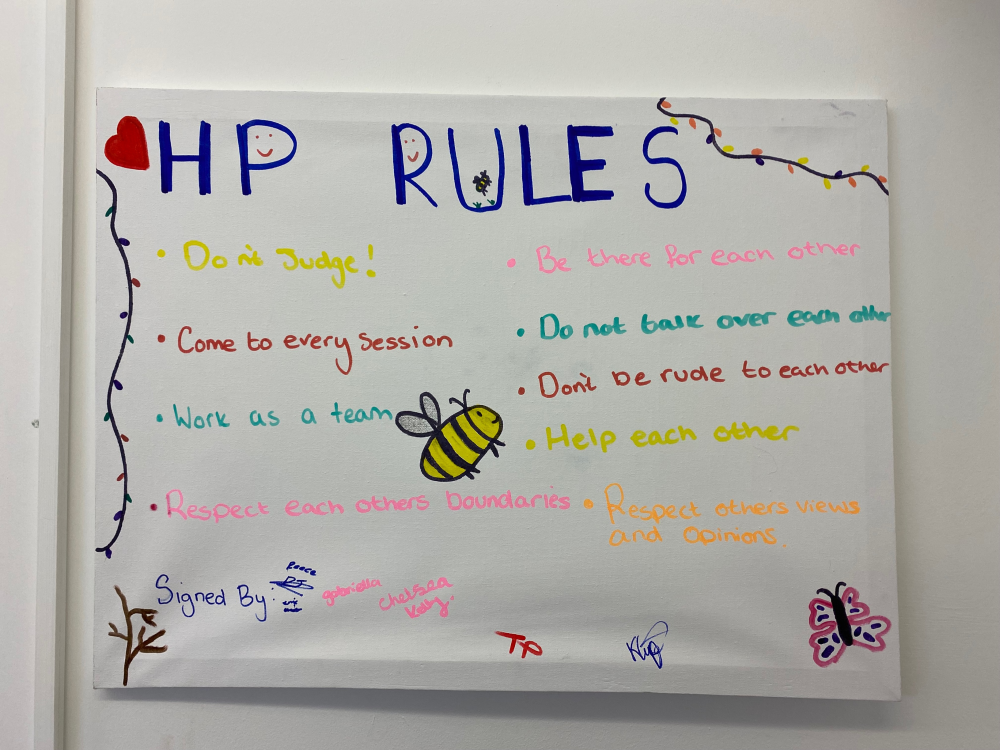 HP RULES
• Don't Judge!
• Come to every session
• Work as a team
• Respect each others boundaries
• Be there for each other
• Do not talk over each other
• Don't be rude to each other
• Help each other
• Respect others views
and opinions.
Signed By:
Reece
gabriella
Chelsea
Katy.
TP